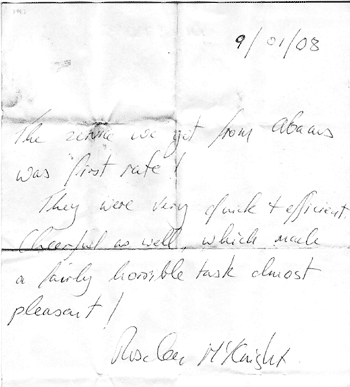 9/01/08
The service we got from Abaans
was first rate!
They were very quick & efficient.
Cheerful as well, which made
a fairly horrible task almost
pleasant!
McKnight.